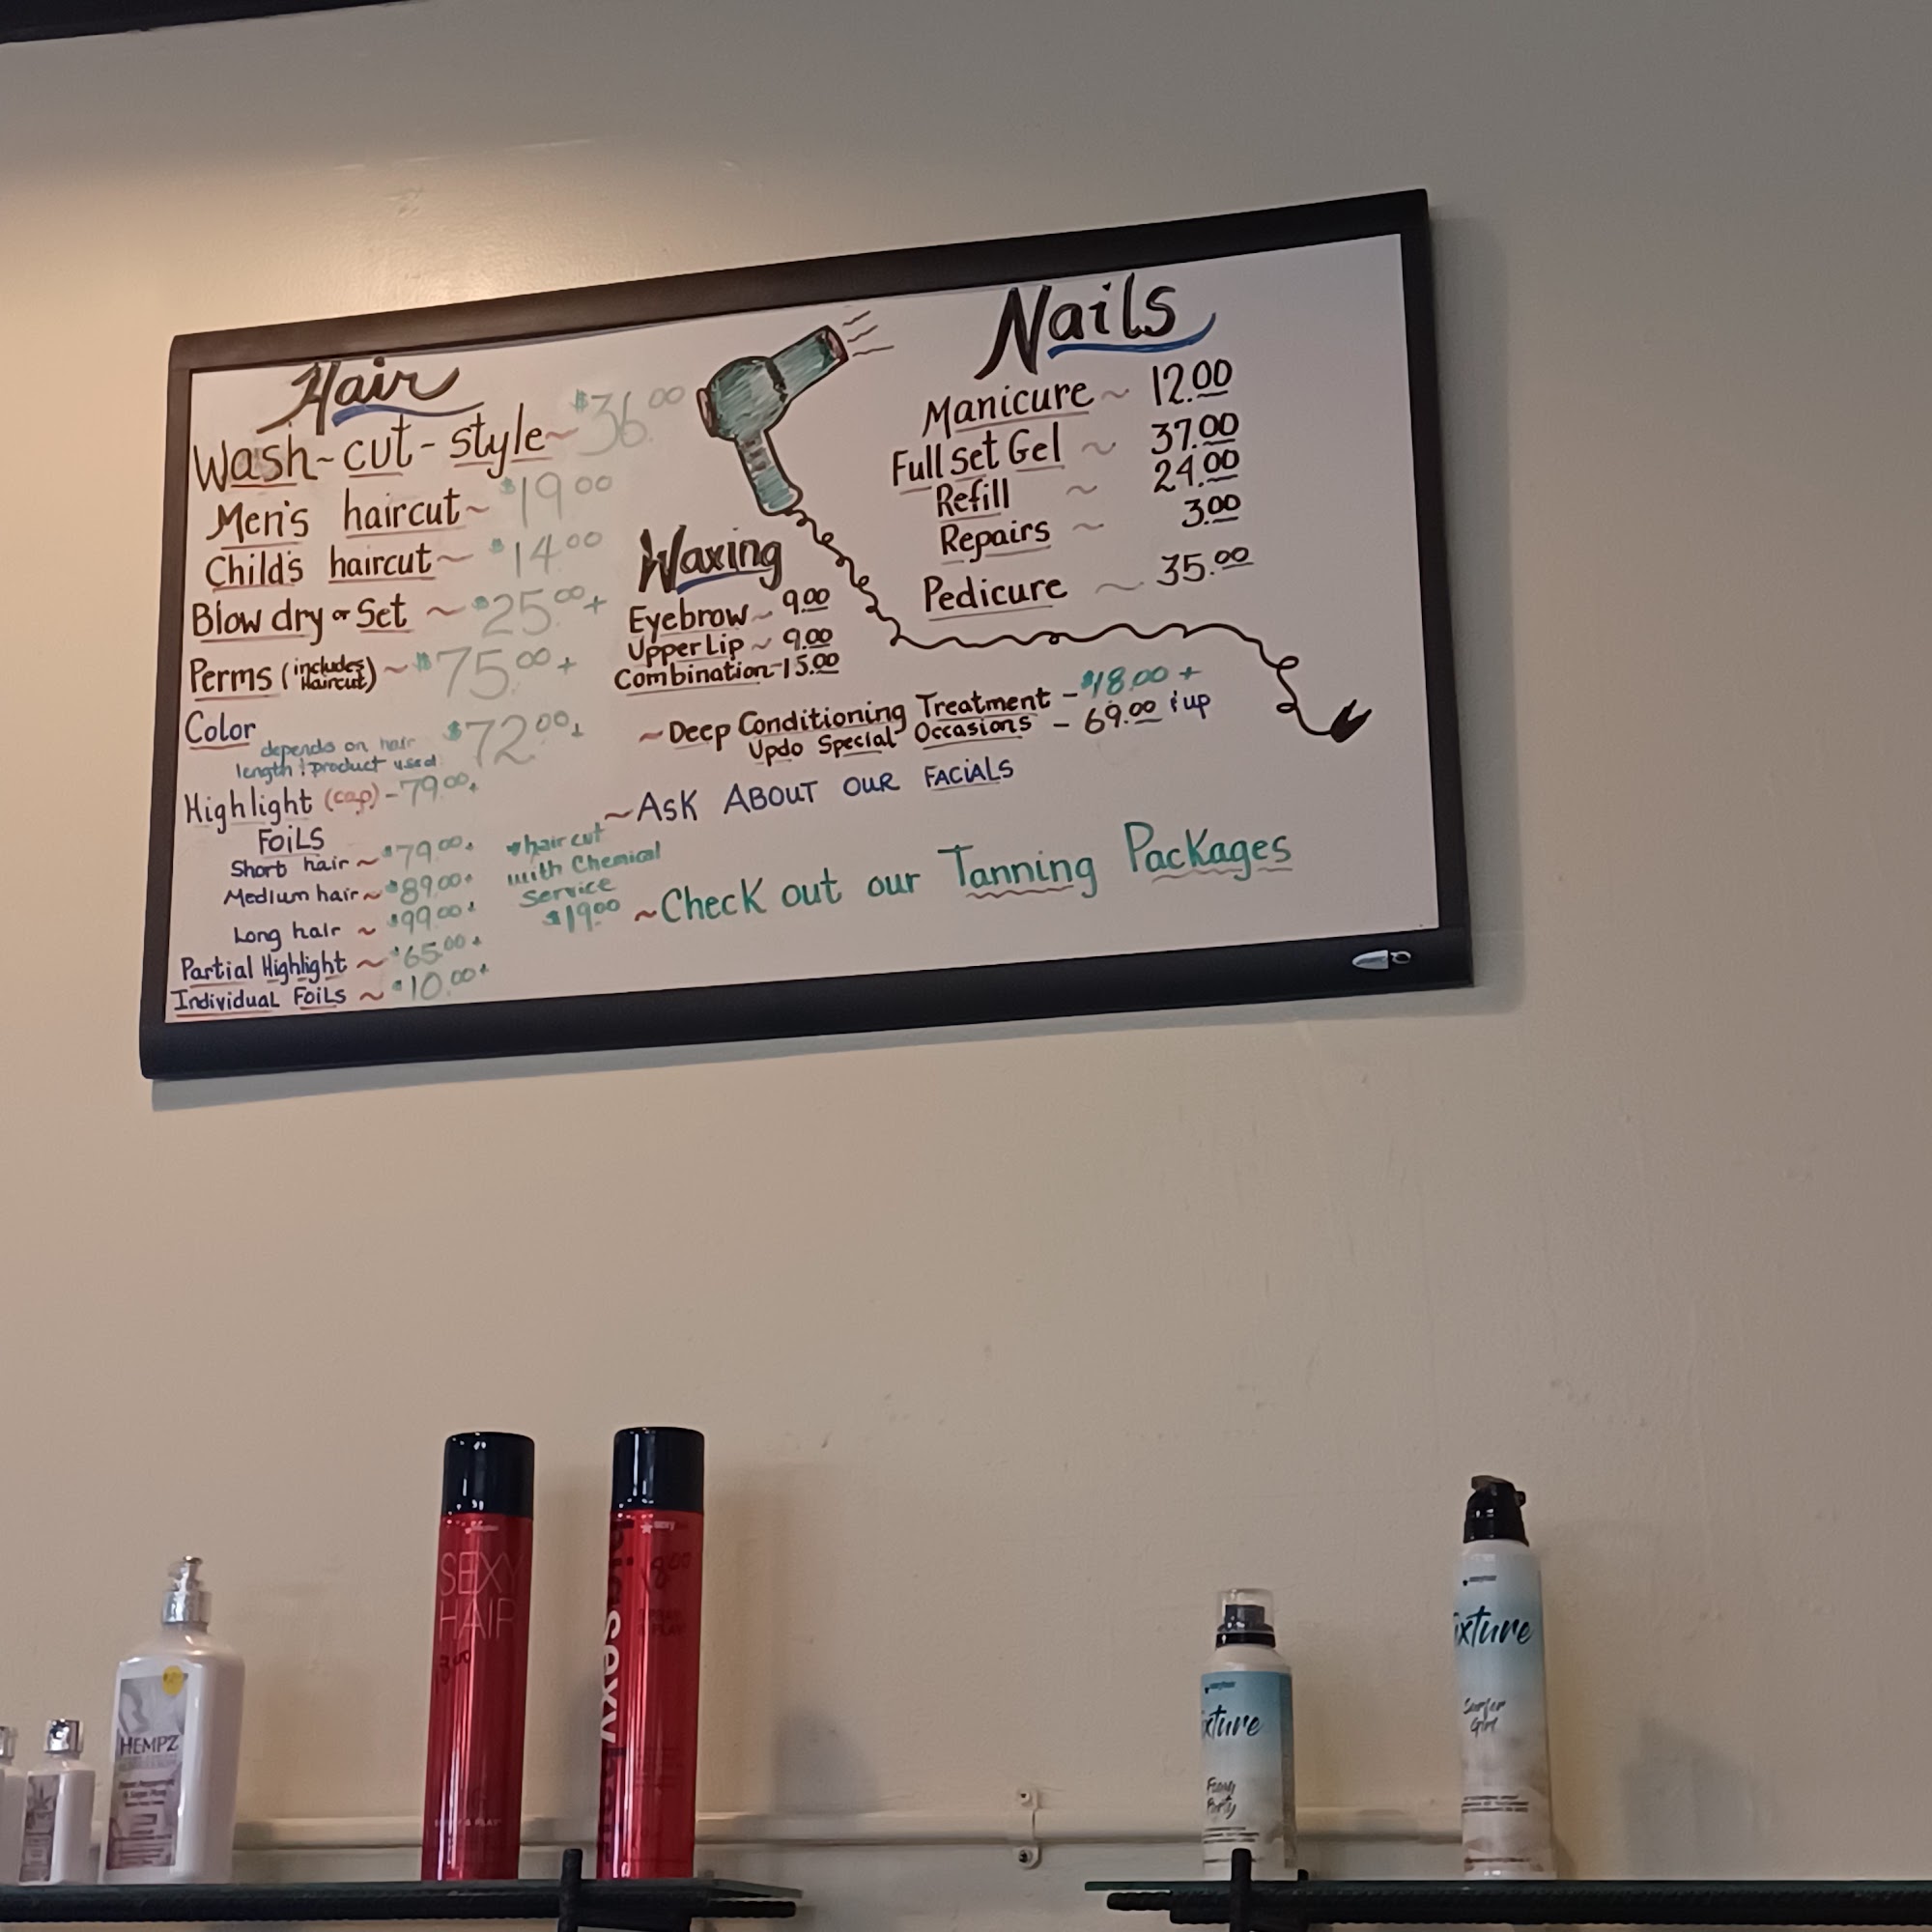 Hair
Wash-cut-style~$36.00
Men's haircut~$19.00
Child's haircut~$14.00
Blow dry or Set ~$25.00+
Perms (includes Haircut)~$75.00+
Color $72.00+
depends on hair
length & product used
Highlight (cap)-79.00+
FOILS
Short hair~$79.00+
Medium hair~$89.00+
Long hair ~ $99.00+
Partial Highlight ~$65.00+
Individual Foils ~$10.00+
haircut
with Chemical
Service
$19.00
Waxing
Eyebrow~9.00
Upper Lip~9.00
Combination-15.00
Nails
Manicure~ 12.00
Full Set Gel ~ 37.00
Refill ~ 24.00
Repairs ~ 3.00
Pedicure ~ 35.00
~Deep Conditioning Treatment -$18.00+
Updo Special Occasions - 69.00 & up
~ASK ABOUT OUR FACIALS
~Check out our Tanning Packages
HEMPZ
SEXY
HAIR
& PLAY
sexy
18.00
xture
Foam
Party
xture
Surfer
Girl